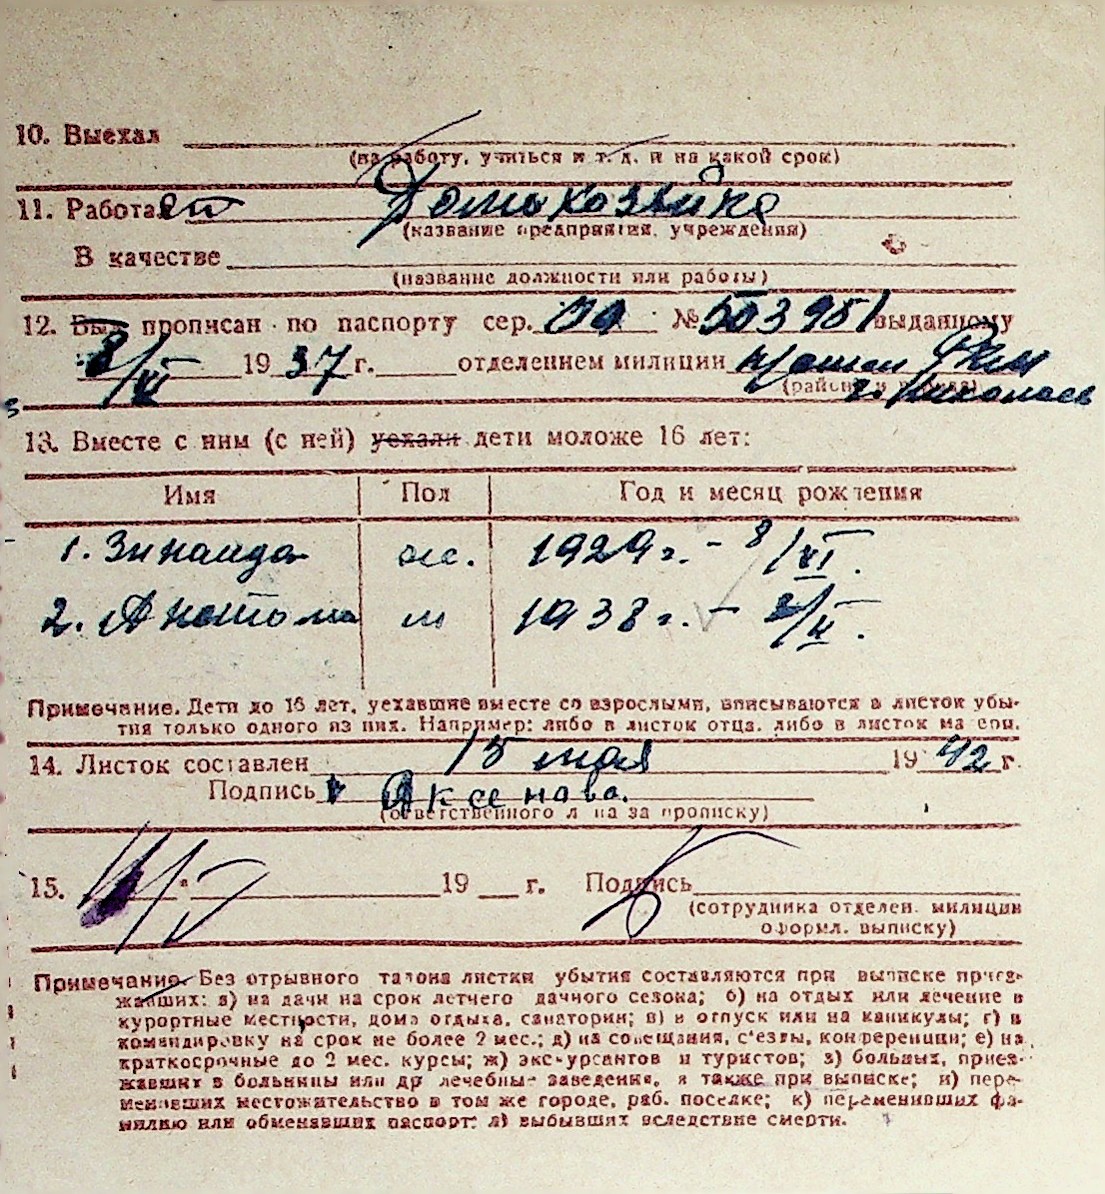 10. Выехал
(на работу, учиться и т. д. и на какой срок)
11. Работает Домохозяйка
(название предприятия, учреждения)
В качестве
(название должности или работы)
12. Был прописан по паспорту сер. № 503951 выданному
8/VI 1937 г. отделением милиции РКМ
(район и города) г. Николаев
13. Вместе с ним (с ней) уехали дети моложе 16 лет:
Имя Пол Год и месяц рождения
1. Зинаида ж. 1929 г. - 8/VI.
2. м 1938 г. - 2/II.
Примечание. Дети до 16 лет, уехавшие вместе со взрослыми, вписываются в листок убы-
тия только одного из них. Например: либо в листок отца, либо в листок матери.
14. Листок составлен 15 мая 1942 г.
Подпись Аксенова.
(ответственного лица за прописку)
15. 19 г. Подпись
(сотрудника отделен. милиции
оформл. выписку)
Примечание. Без отрывного талона листки убытия составляются при выписке приез-
жавших: а) на дачи на срок летнего дачного сезона; б) на отдых или лечение в
курортные местности, дома отдыха, санатории; в) в отпуск или на каникулы; г) в
командировку на срок не более 2 мес.; д) на совещания, с'езды, конференции; е) на
краткосрочные до 2 мес. курсы; ж) экскурсантов и туристов; з) больных, приез-
жавших в больницы или др лечебные заведения, а также при выписке; и) пере-
менивших местожительство в том же городе, раб. поселке; к) переменивших фа-
милию или обменявших паспорт; л) выбывших вследствие смерти.